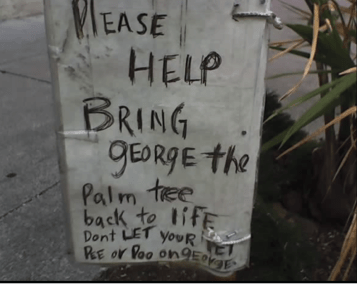 PLEASE
HELP
BRING
GEORGE the
Palm tree
back to liFE
Dont LET your PET
PEE or Poo on GEORGE